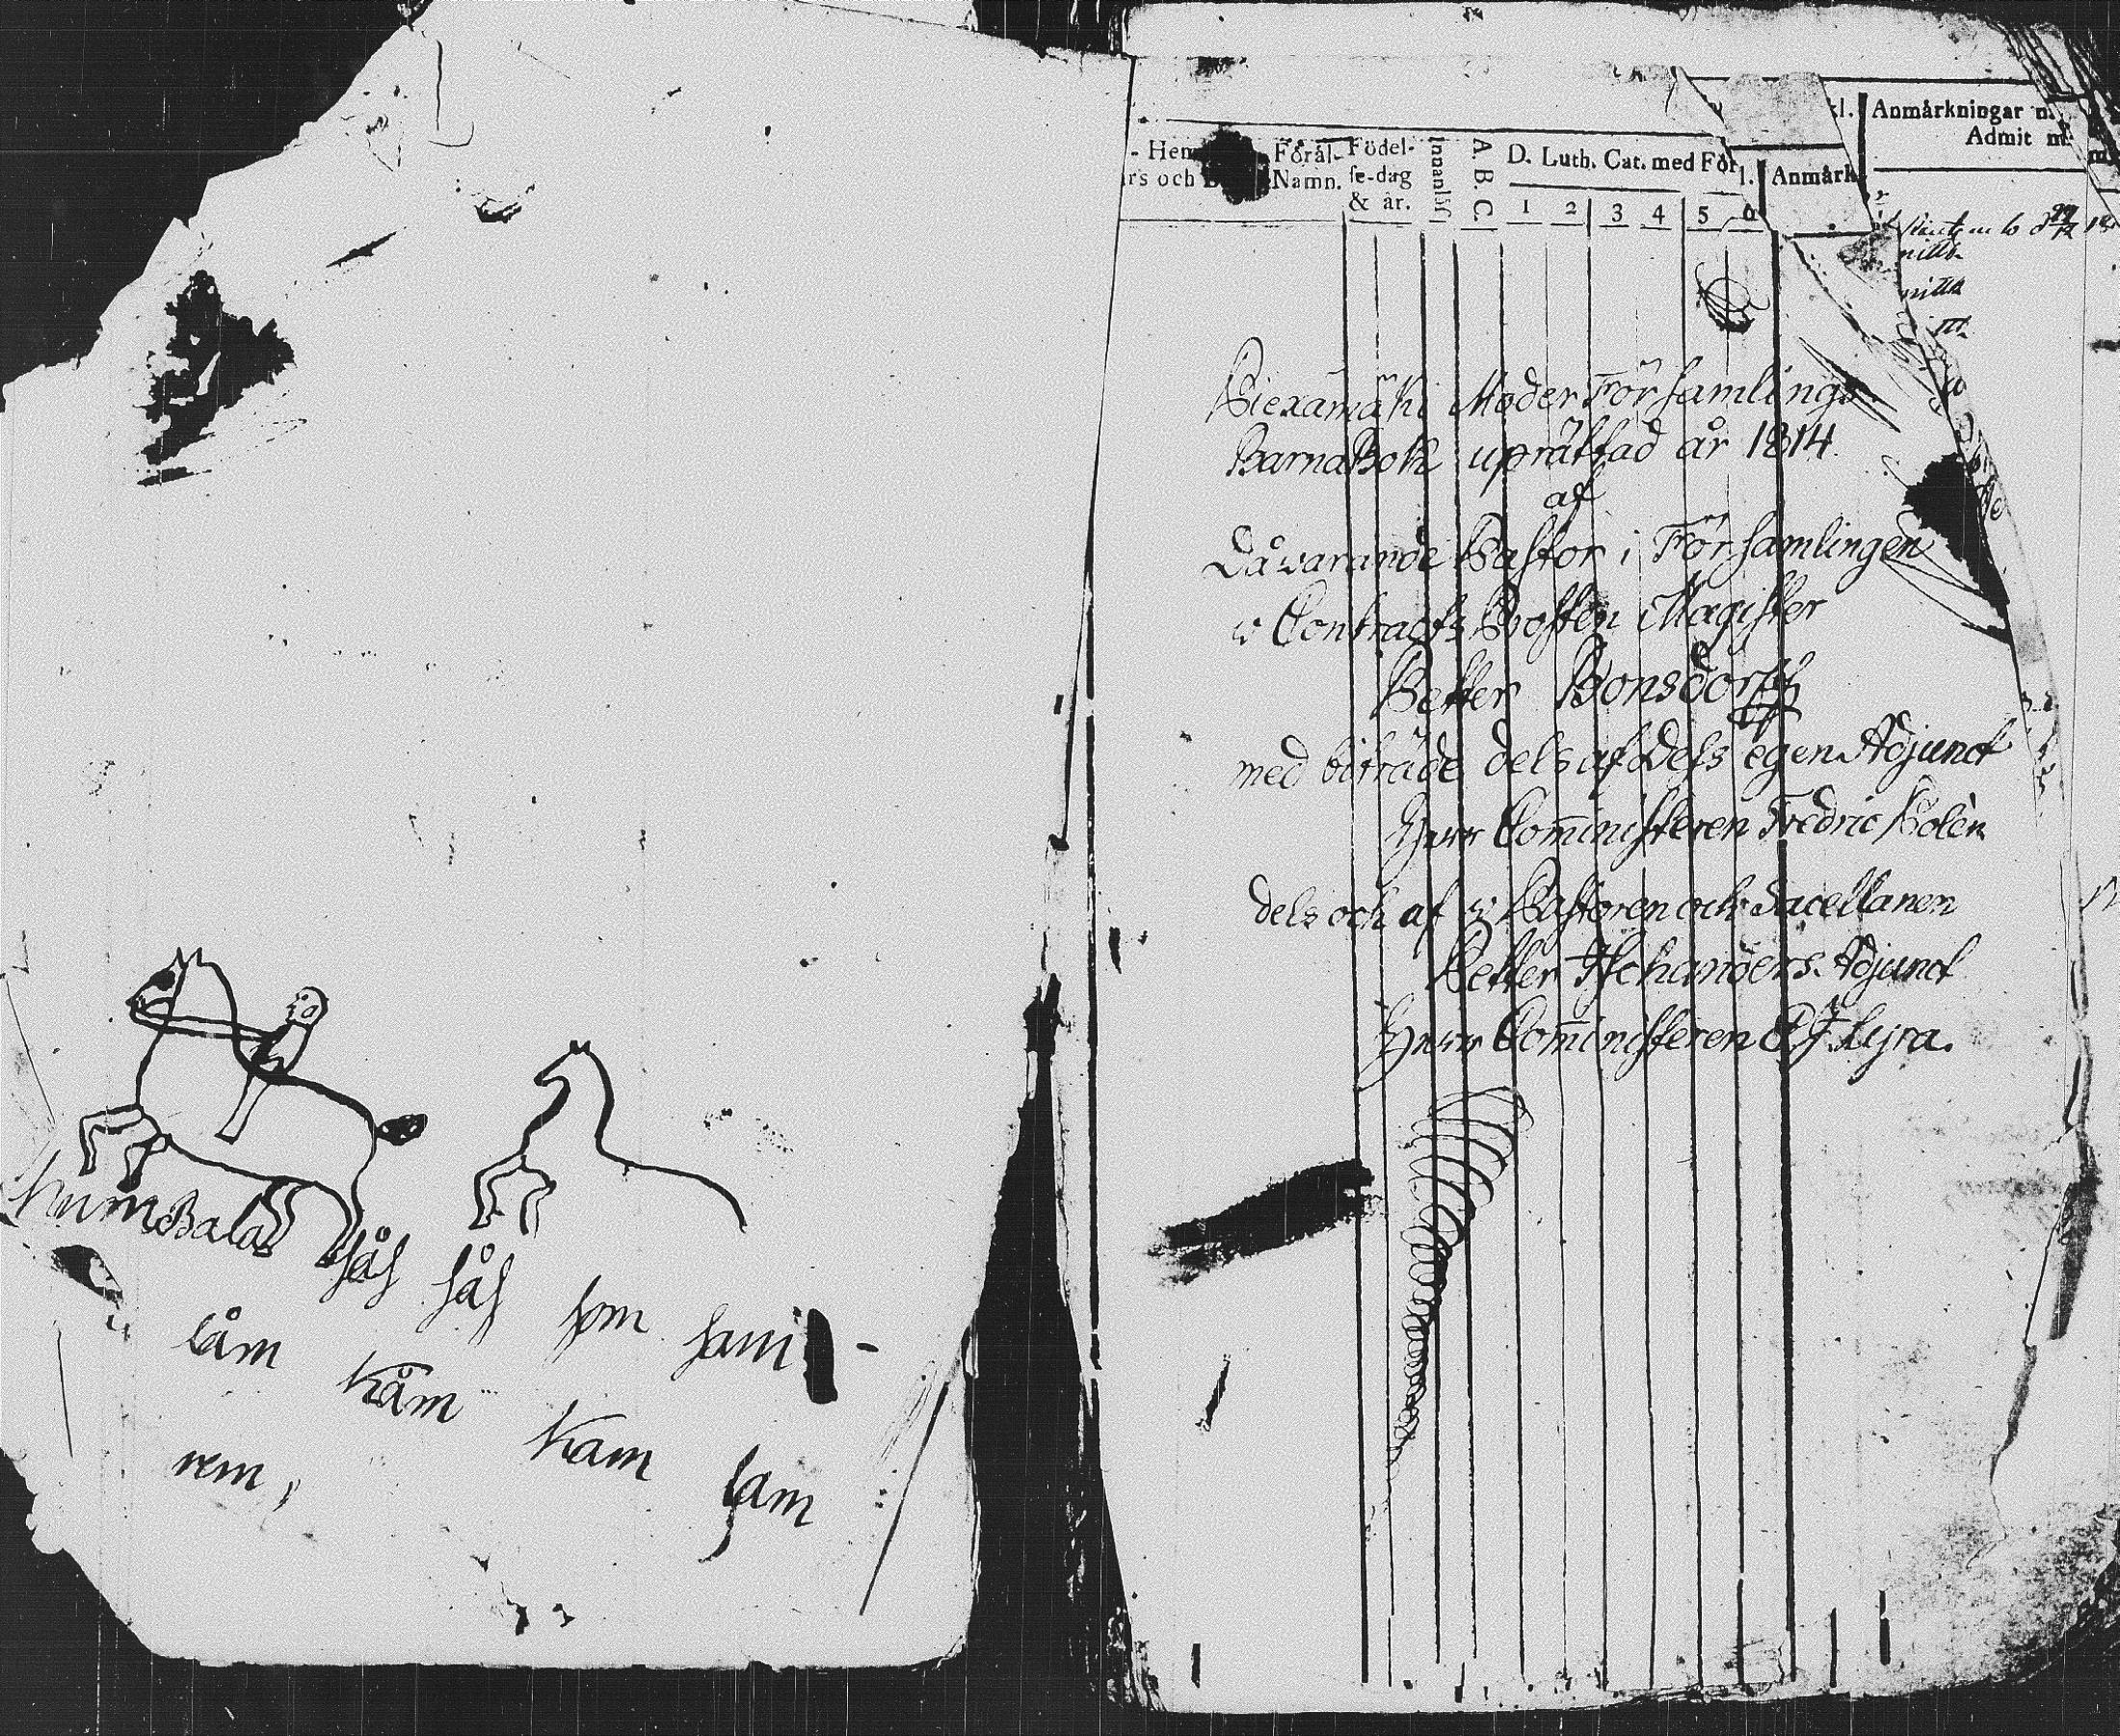 KumBala
sås sås som sam
låm kåm kam lam
rem,
Förål- Födel- Innanläs A. B. C. D. Luth. Cat. med För
rs och Namn. se-dag Anmärk
& år. 1 2 3 4 5 6
Anmärkningar
Admit
Piexämäki Moder Församlings
BarnaBok uprättad år 1814.
af
Dåvarande Pastor i Församlingen
v Contracts Prosten Magister
Petter Bonsdorff
med biträde dels af Dess egen Adjunct
Herr Com̄inisteren Fredric Polèn
dels och af v Pastoren och Sacellanen
Petter Achanders Adjunct
Herr Com̄inisteren P J Lyra.